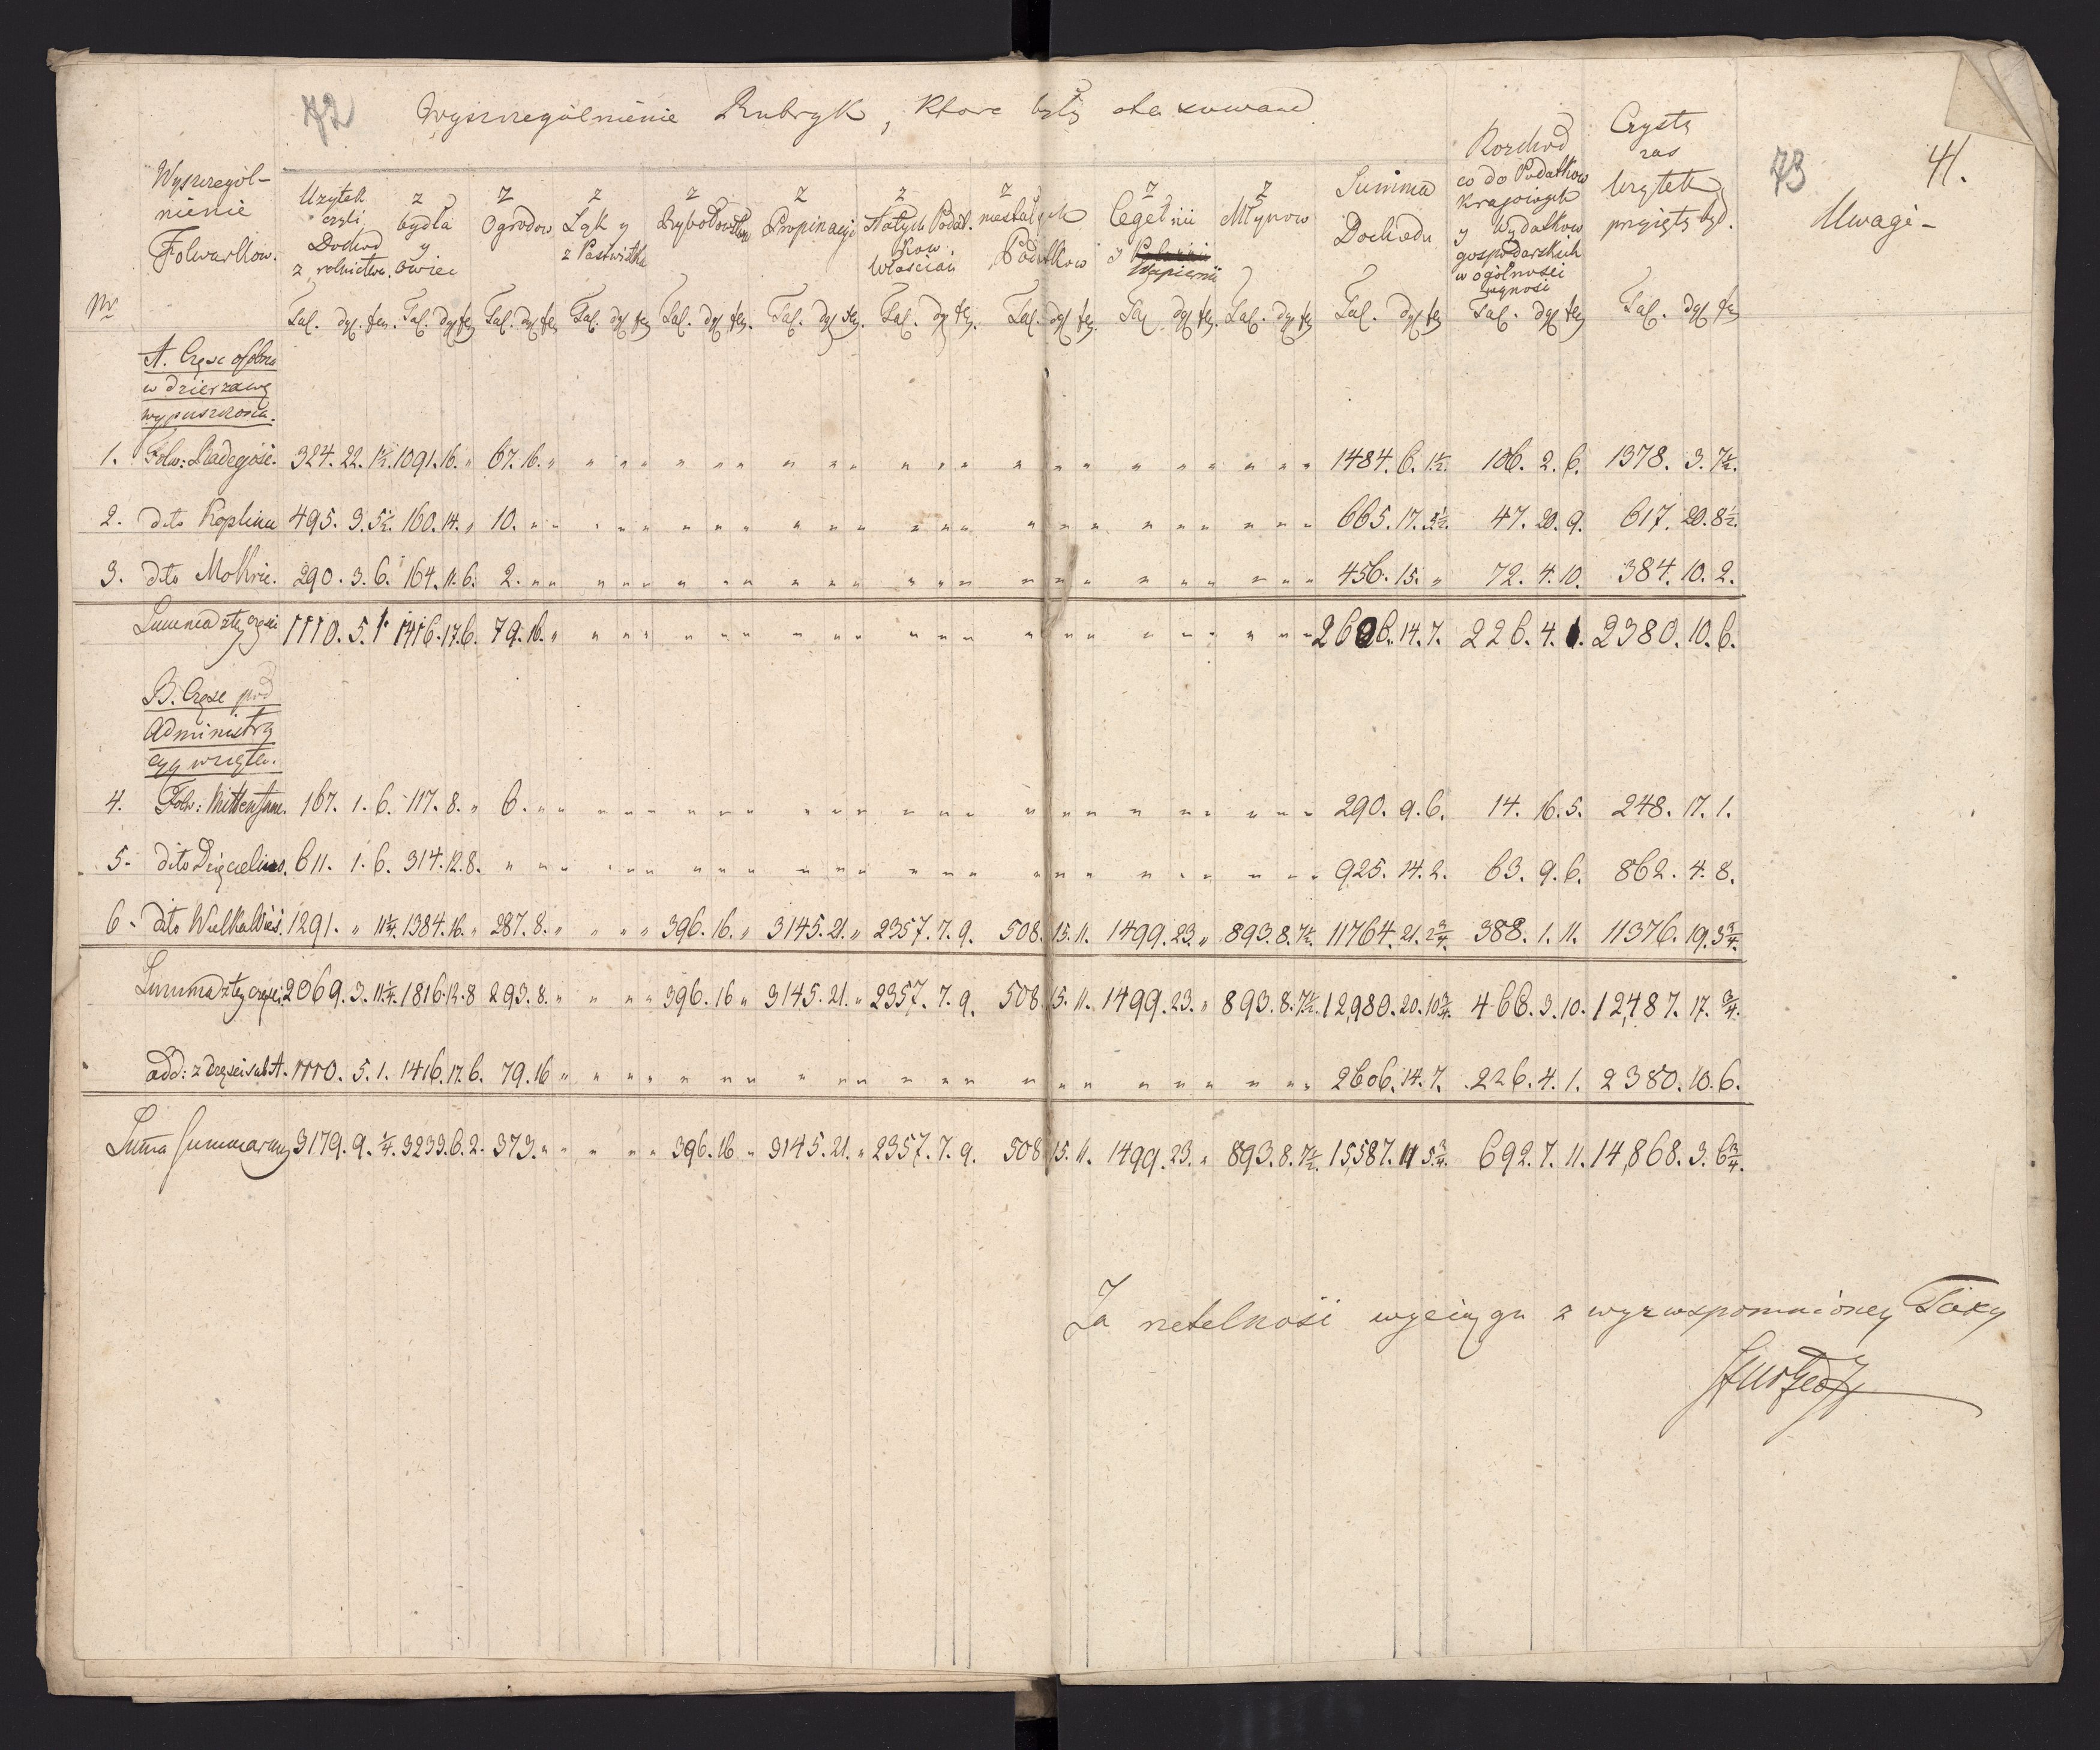 72 Wyszczegolnienie Rubryk, Ktore były otaxowane
73 41.
Nr Wyszczegol-
nienie
Folwarkow.
Uzytek
czyli
Dochod
z rolnictwa.
z
bydła
y
owiec
z
Ogrodow
z
Łąk y
z Pastwiska
z
Rybołowstwa
z
Propinacyi
z
Stałych Podat-
kow
Włościan
z
niestałych
Podatkow
z
Cegelnii
y Wapiernii
z
Młynow
Summa
Dochodu
Rozchod
co do Podatkow
Krajowych
y Wydatkow
gospodarskich
w ogolnosci
Czysty
zas
Uzytek
przyięty był.
Uwagi-
Tal. dgl. fen. Tal. dgl. fen. Tal. dgl. fen. Tal. dgl. fen. Tal. dgl. fen. Tal. dgl. fen. Tal. dgl. fen. Tal. dgl. fen. Tal. dgl. fen. Tal. dgl. fen. Tal. dgl. fen. Tal. dgl. fen. Tal. dgl. fen.
A. Częsc osobna
w dzierzawę
wypuszczona.
1. Folw: Radegosc. 324. 22. 1½. 1091. 16. „ 67. 16. „ „ „ „ „ „ „ „ „ „ „ „ „ „ „ „ „ „ „ „ „ „ 1484. 6. 1½. 106. 2. 6. 1378. 3. 7½.
2. dito Koplina 495. 3. 5½. 160. 14. „ 10. „ „ „ „ „ „ „ „ „ „ „ „ „ „ „ „ „ „ „ „ „ „ „ 665. 17. 5½. 47. 20. 9. 617. 20. 8½.
3. dito Mokrie. 290. 3. 6. 164. 11. 6. 2. „ „ „ „ „ „ „ „ „ „ „ „ „ „ „ „ „ „ „ „ „ „ „ 456. 15. „ 72. 4. 10. 384. 10. 2.
Summa z tey częsci 1110. 5. 1. 1416. 17. 6. 79. 16. „ „ „ „ „ „ „ „ „ „ „ „ „ „ „ „ „ „ „ „ „ „ 2606. 14. 7. 226. 4. 1. 2380. 10. 6.
B. Częsc pod
Administra
cyą wzięta.
4. Folw: Mittenhun. 167. 1. 6. 117. 8. „ 6. „ „ „ „ „ „ „ „ „ „ „ „ „ „ „ „ „ „ „ „ „ „ „ 290. 9. 6. 14. 16. 5. 248. 17. 1.
5. dito Dzięcielina. 611. 1. 6. 314. 12. 8. „ „ „ „ „ „ „ „ „ „ „ „ „ „ „ „ „ „ „ „ „ „ „ „ 925. 14. 2. 63. 9. 6. 862. 4. 8.
6. dito Wielka Wieś. 1291. „ 11¼. 1384. 16. „ 287. 8. „ „ „ „ 396. 16. „ 3145. 21. „ 2357. 7. 9. 508. 15. 11. 1499. 23. „ 893. 8. 7½. 11764. 21. 2¾. 388. 1. 11. 11376. 19. 3¾.
Summa z tey częsci 2069. 3. 11¼. 1816. 12. 8 293. 8. „ „ „ „ 396. 16 „ 3145. 21. „ 2357. 7. 9. 508. 15. 11. 1499. 23. „ 893. 8. 7½. 12,980. 20. 10¾. 466. 3. 10. 12,487. 17. ¾.
add: z Częsci sub A. 1110. 5. 1. 1416. 17. 6. 79. 16 „ „ „ „ „ „ „ „ „ „ „ „ „ „ „ „ „ „ „ „ „ „ 2606. 14. 7. 226. 4. 1. 2380. 10. 6.
Suma Summarum 3179. 9. ¼. 3233. 6. 2. 373. „ „ „ „ „ 396. 16 „ 3145. 21. „ 2357. 7. 9. 508. 15. 11. 1499. 23. „ 893. 8. 7½. 15,587. 11 5¾. 692. 7. 11. 14,868. 3. 6¾.
Za rzetelnosci wyciągu z wyzwspomnioney Taxy